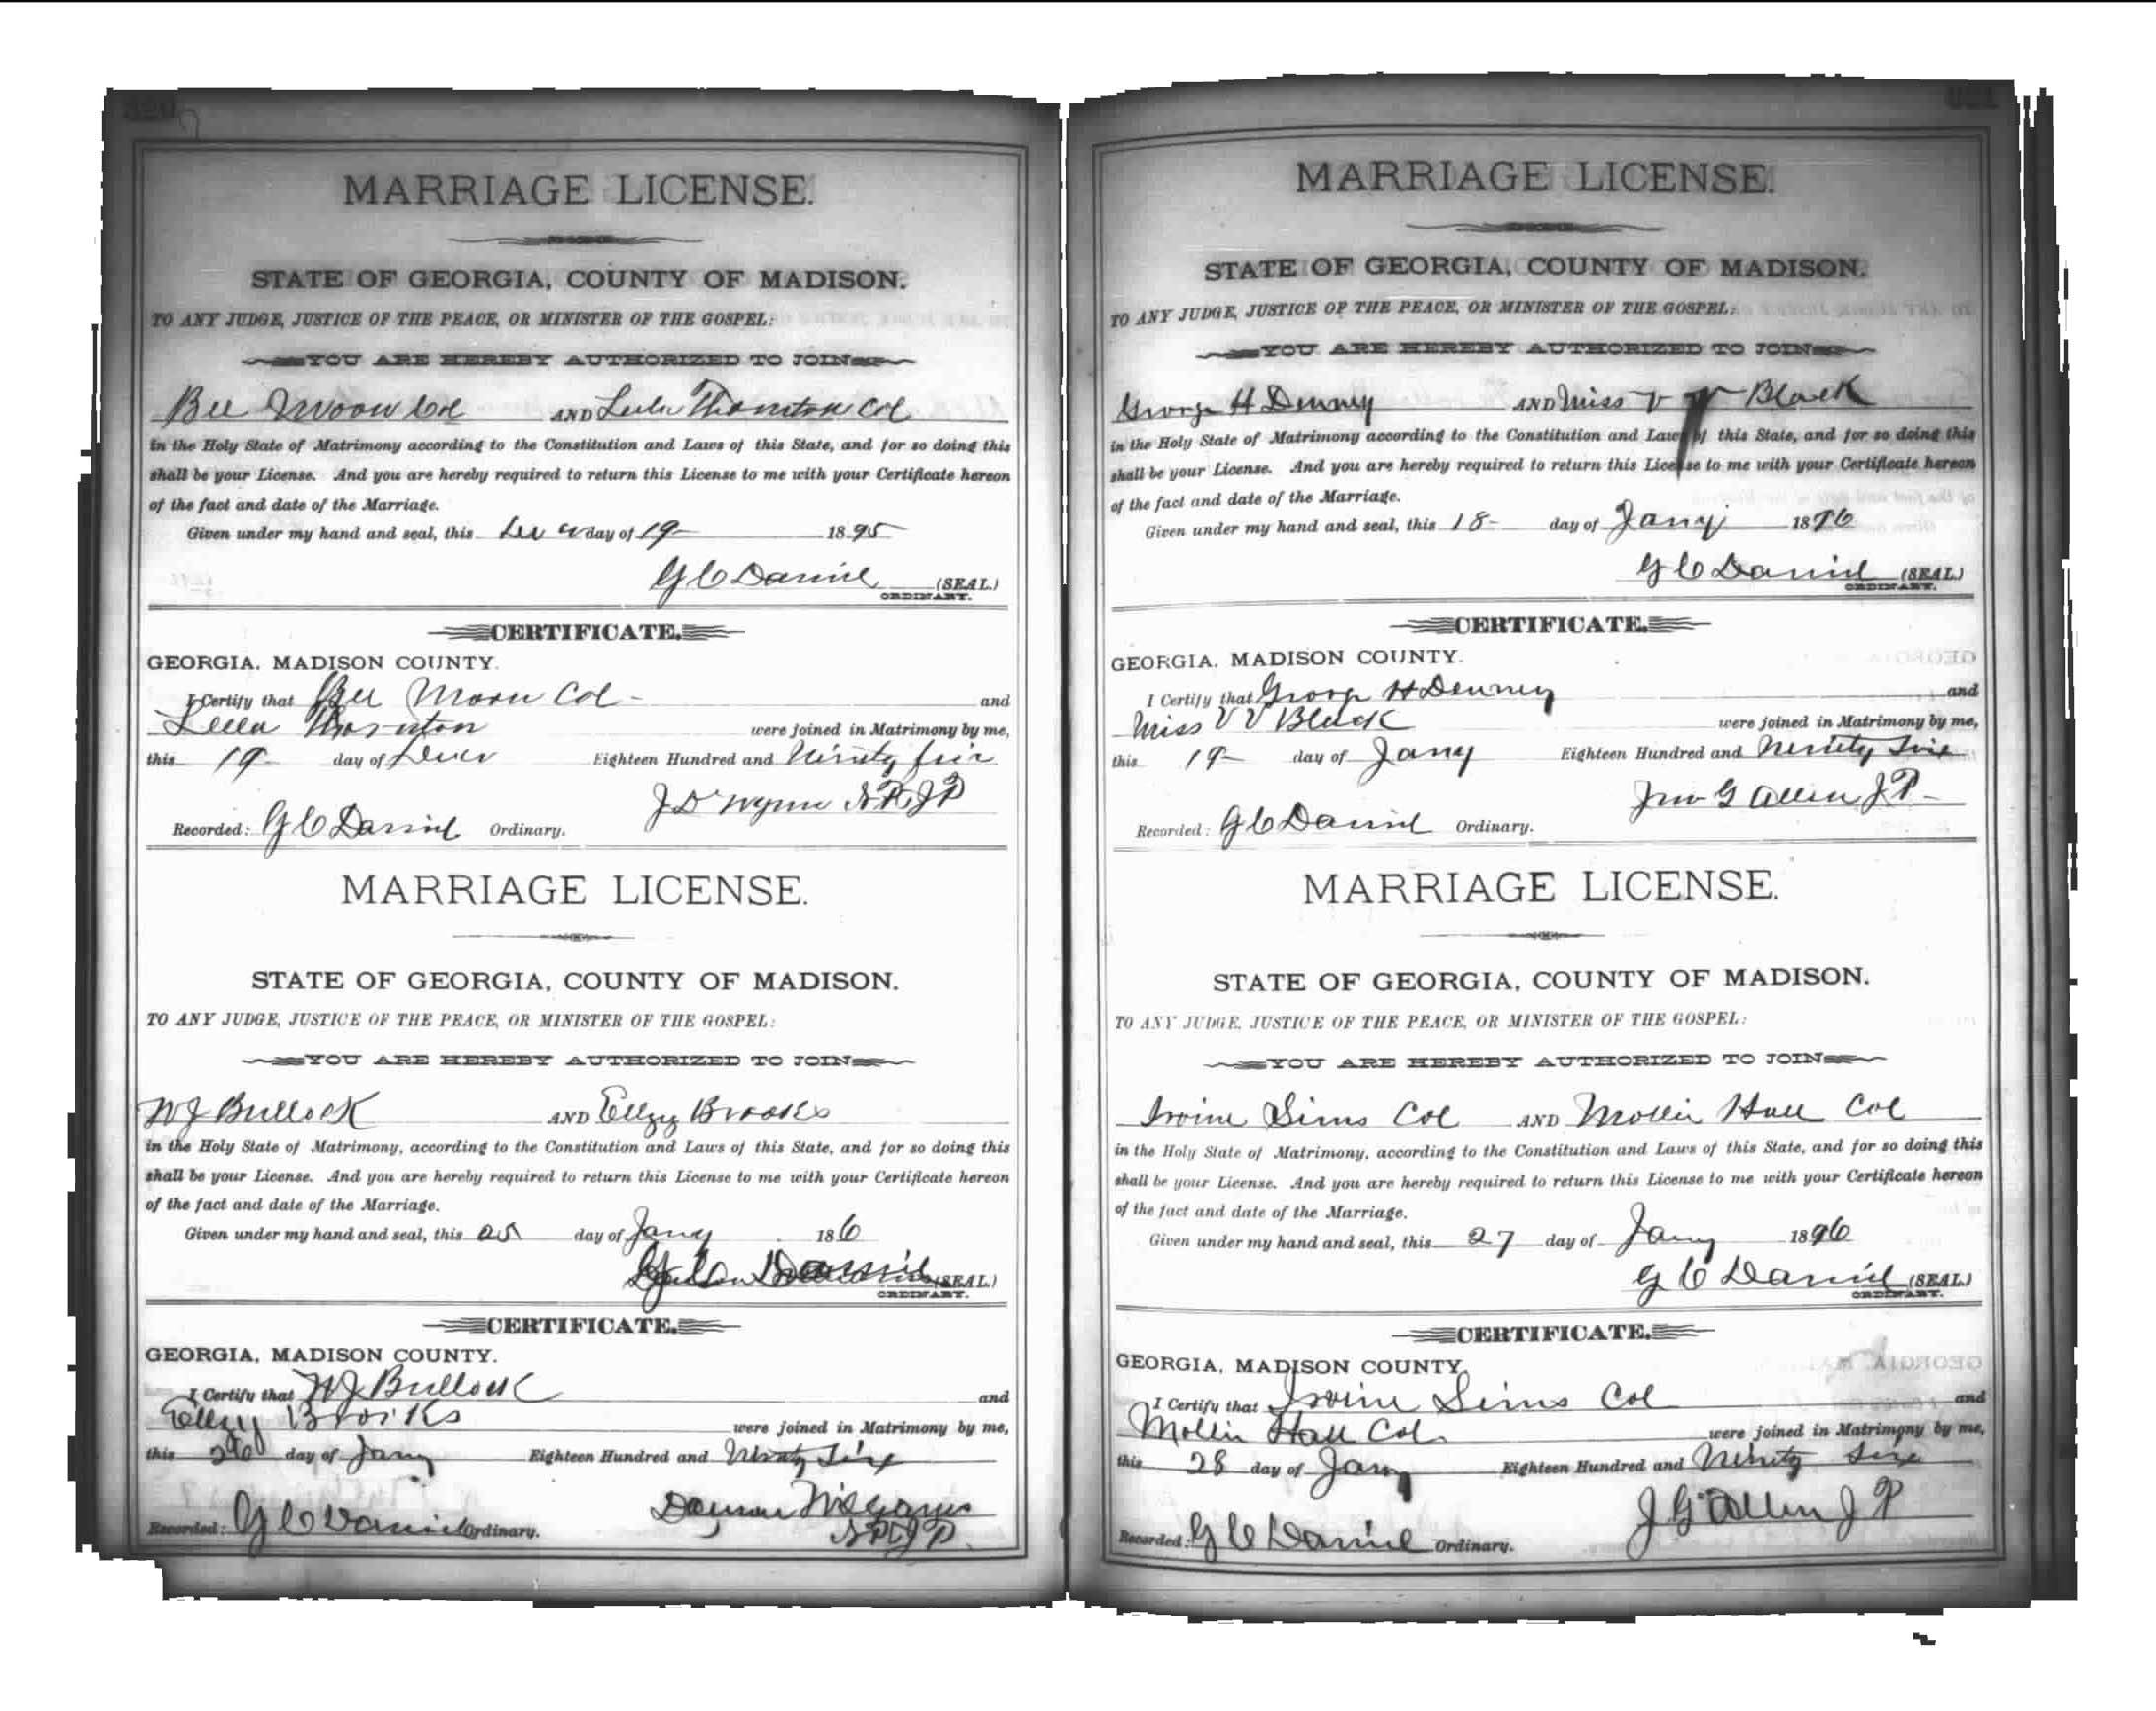 320
MARRIAGE LICENSE.
STATE OF GEORGIA, COUNTY OF MADISON.
TO ANY JUDGE, JUSTICE OF THE PEACE, OR MINISTER OF THE GOSPEL:
YOU ARE HEREBY AUTHORIZED TO JOIN
Bee Moon Col AND Lula Thornton Col
in the Holy State of Matrimony according to the Constitution and Laws of this State, and for so doing this
shall be your License. And you are hereby required to return this License to me with your Certificate hereon
of the fact and date of the Marriage.
Given under my hand and seal, this day of 19 1895
G C Daniel (SEAL)
ORDINARY.
CERTIFICATE.
GEORGIA, MADISON COUNTY.
I Certify that Bee Moon Col and
Lula Thornton were joined in Matrimony by me,
this 19 day of Eighteen Hundred and Ninety five
J D Wynn N.P. J P
Recorded: G C Daniel Ordinary.
MARRIAGE LICENSE.
STATE OF GEORGIA, COUNTY OF MADISON.
TO ANY JUDGE, JUSTICE OF THE PEACE, OR MINISTER OF THE GOSPEL:
YOU ARE HEREBY AUTHORIZED TO JOIN
W J Bullock AND Ellzy Brooks
in the Holy State of Matrimony, according to the Constitution and Laws of this State, and for so doing this
shall be your License. And you are hereby required to return this License to me with your Certificate hereon
of the fact and date of the Marriage.
Given under my hand and seal, this 25 day of Jany 186
G C Daniel (SEAL)
ORDINARY.
CERTIFICATE.
GEORGIA, MADISON COUNTY.
I Certify that W J Bullock and
Ellzy Brooks were joined in Matrimony by me,
this 26 day of Jany Eighteen Hundred and Ninety Six
Williams
N.P. J P.
Recorded: G C Daniel Ordinary.
MARRIAGE LICENSE.
STATE OF GEORGIA, COUNTY OF MADISON.
TO ANY JUDGE, JUSTICE OF THE PEACE, OR MINISTER OF THE GOSPEL:
YOU ARE HEREBY AUTHORIZED TO JOIN
George H Denney AND Miss V V Black
in the Holy State of Matrimony according to the Constitution and Laws of this State, and for so doing this
shall be your License. And you are hereby required to return this License to me with your Certificate hereon
of the fact and date of the Marriage.
Given under my hand and seal, this 18 day of Jany 1896
G C Daniel (SEAL)
ORDINARY.
CERTIFICATE.
GEORGIA, MADISON COUNTY.
I Certify that George H Denney and
Miss V V Black were joined in Matrimony by me,
this 19 day of Jany Eighteen Hundred and Ninety Six
Jno G Allen J P
Recorded: G C Daniel Ordinary.
MARRIAGE LICENSE.
STATE OF GEORGIA, COUNTY OF MADISON.
TO ANY JUDGE, JUSTICE OF THE PEACE, OR MINISTER OF THE GOSPEL:
YOU ARE HEREBY AUTHORIZED TO JOIN
Irvine Sims Col AND Mollie Hall Col
in the Holy State of Matrimony, according to the Constitution and Laws of this State, and for so doing this
shall be your License. And you are hereby required to return this License to me with your Certificate hereon
of the fact and date of the Marriage.
Given under my hand and seal, this 27 day of Jany 1896
G C Daniel (SEAL)
ORDINARY.
CERTIFICATE.
GEORGIA, MADISON COUNTY.
I Certify that Irvine Sims Col and
Mollie Hall Col. were joined in Matrimony by me,
this 28 day of Jany Eighteen Hundred and Ninety Six
J G Allen J P
Recorded: G C Daniel Ordinary.